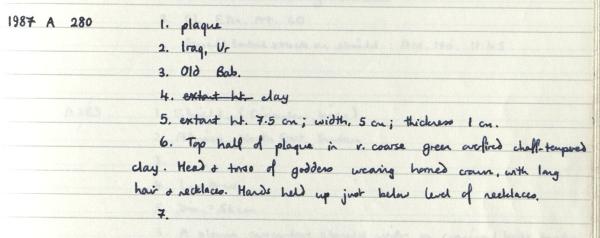 1987 A 280 1. plaque
2. Iraq, Ur
3. Old Bab.
4. extant ht. clay
5. extant ht. 7.5 cm; width. 5 cm; thickness 1 cm.
6. Top half of plaque in r. coarse green overfired chaff-tempered
clay. Head & torso of goddess wearing horned crown, with long
hair & necklaces. Hands held up just below level of necklaces.
7.